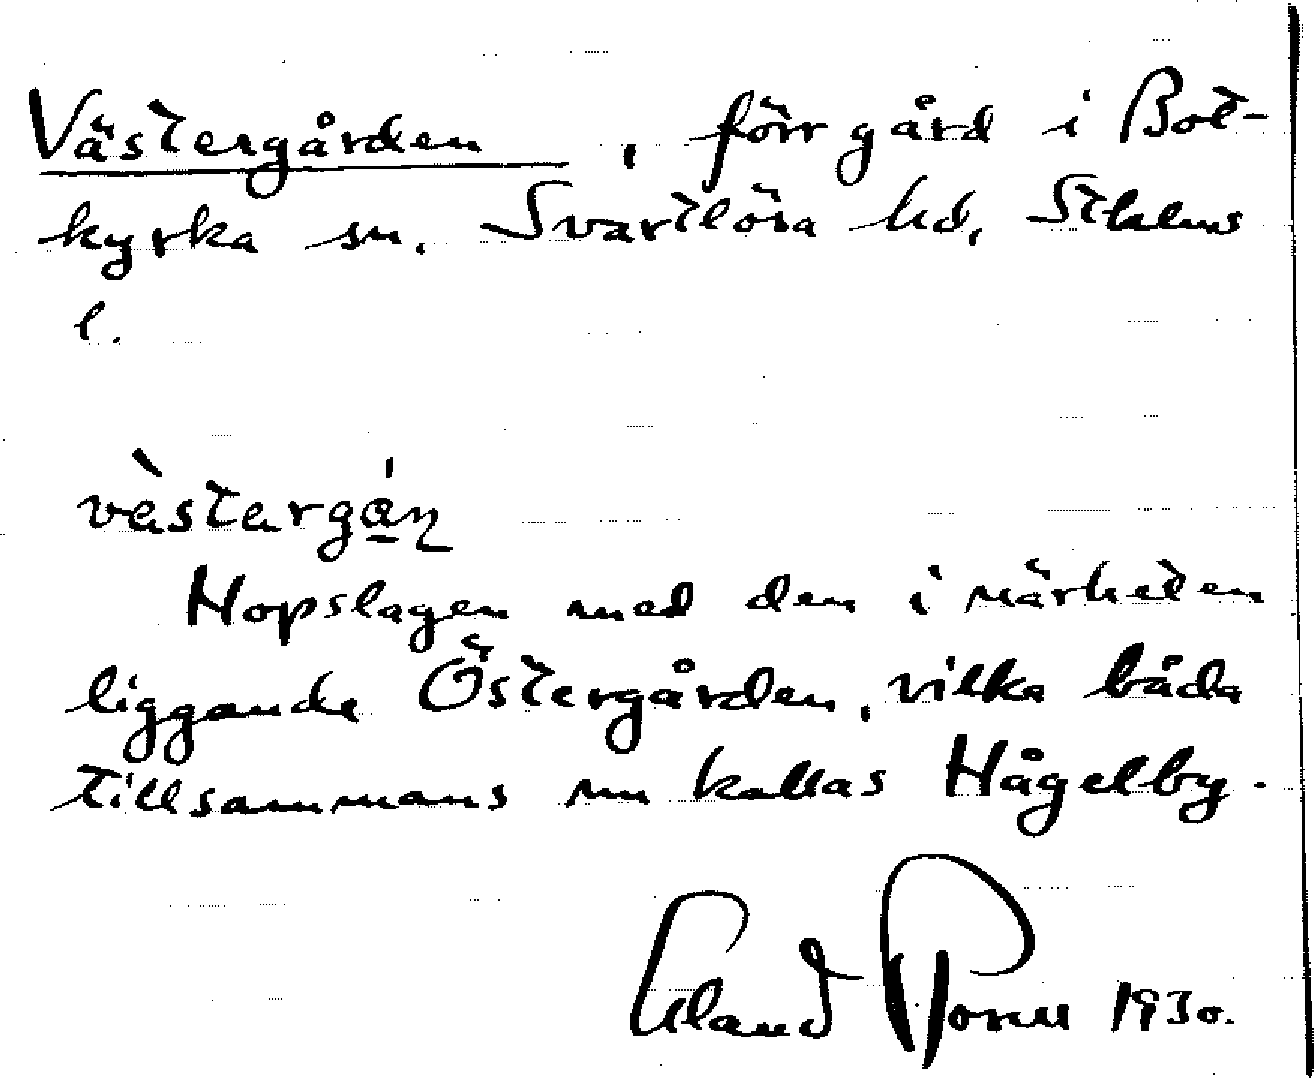 Västergården, förr gård i Bot-
kyrka sn. Svartlösa hd, Sthlms
l.
vàstargá̱n
Hopslagen med den i närheten
liggande Östergården, vilka båda
tillsammans nu kallas Hågelby.
1930.